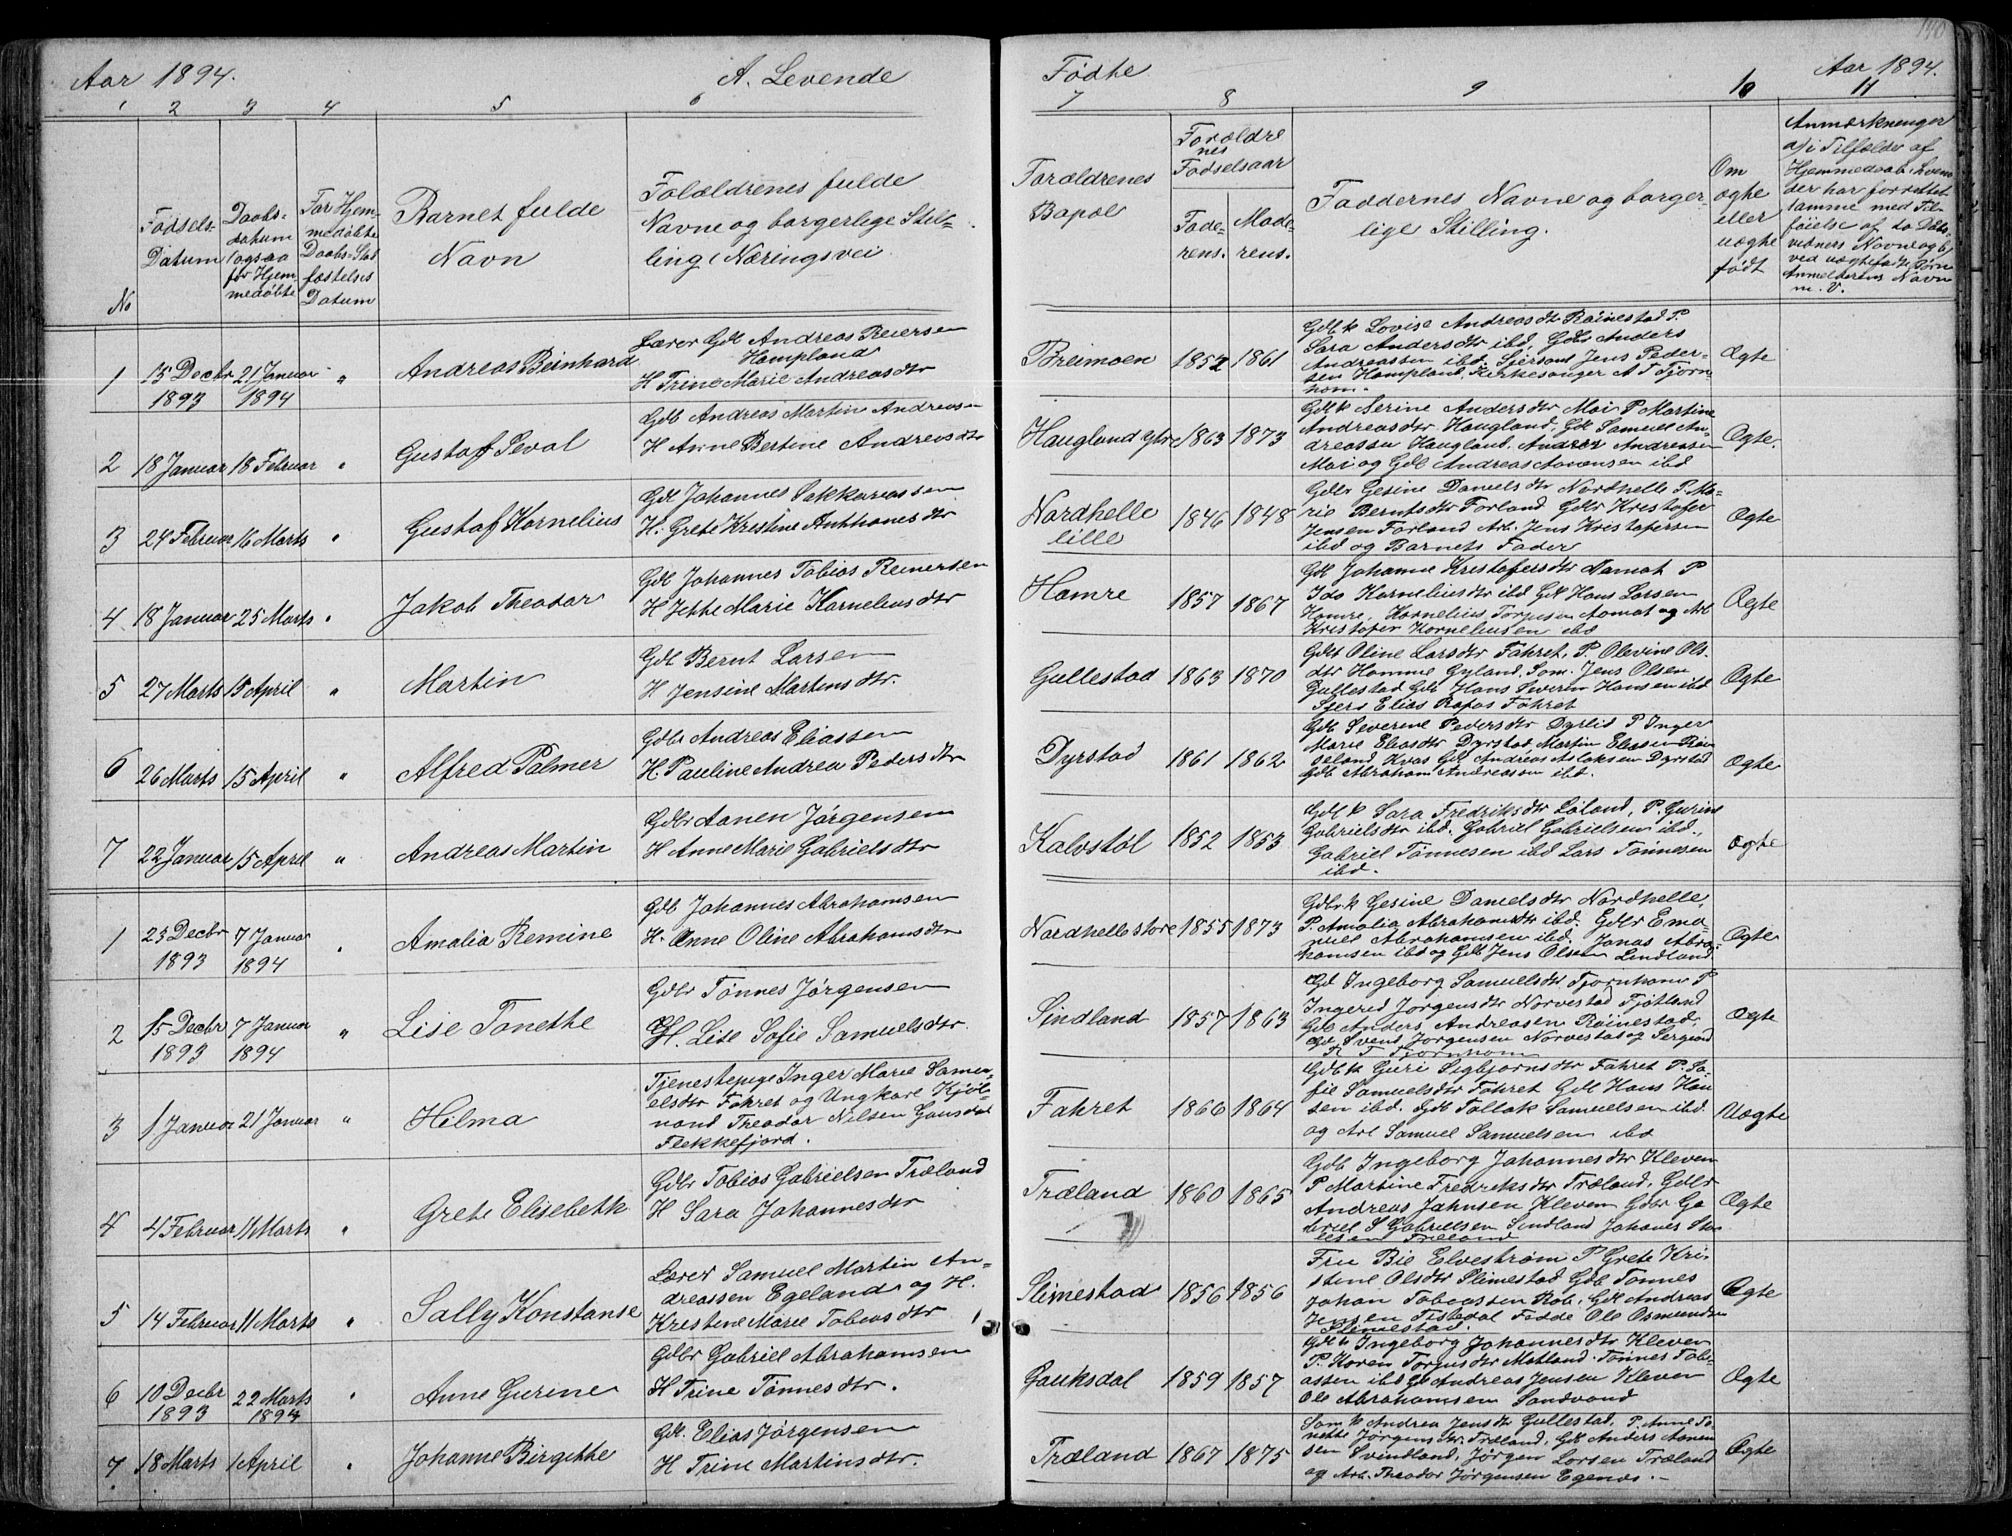 140
Aar 1894.
A. Levende
Fødte
Aar 1894.
1 2 3 4 5 6 7 8 9 10 11
No
Fødsels-
Datum
Daabs-
datum
(ogsaa
for Hjem
medøbte
For Hjem-
medøbte
Daabs-Stad
fæstelses
Datum
Barnet fulde
Navn
Folældrenes fulde
Navne og borgerlige Stil-
ling (Næringsvei
Forældrenes
Bopæl
Forældre
nes
Fødselsaar
Fade-
rens.
Mode-
rens.
Faddernes Navne og borger
lige Stilling.
Om
ægte
eller
uægte
født
Anmærkninger
a/i Tilfælde af
Hjemmedaab: hvem
der har forrettet
samme med Til-
føielse af to Daabs-
vidners Navne og b/
ved uægtefødte Børn
Anmelderens Navn
m. v.
1
15 Decbr
1893
21 Januar
1894
"
Andreas Bernhard
Lærer Gdl Andreas Reiersen
Hompland
H Trine Marie Andreasdtr
Breimoen
1852
1861
Gdlk Lovise Andreasdtr Røinestad P.
Sara Andersdtr ibd, Gdr Anders
Andreassen ibd. Sjersant Jens Peder-
sen Hompland, Kirkesanger A F Fjorn-
hom.
Ægte
2
18 Januar
18 Februar
"
Gustaf Peval
Gdb Andreas Martin Andreasn
H Anne Bertine Andreasdtr
Haugland ytre
1863
1873
Gdlk Serine Andersdtr Moi P Martine
Andreasdtr Haugland, Gdl Samuel An-
dreassen Haugland. Andreas Andreasen
Moi og Gdl Andreas Aanensen ibd
Ægte.
3
24 Februar
16 Marts
"
Gustaf Kornelius
Gdl Johannes Sakkariassen
H. Grete Kristine Anthhonesdtr
Nordhelle
lille
1846
1848
Gdbr Gesine Danielsdtr Nordhelle P. Ma-
rie Berntsdtr Forland Gdbr Kristofer
Jensen Forland Arb. Jens Kristofersen
ibd og Barnets Fader
Ægte
4
18 Januar
25 Marts
"
Jakob Theodor
Gdl Johannes Tobias Reinersen
H Jette Marie Korneliusdtr
Hamre
1857
1867
Gdl Johanne Kristofersdtr Aamot P
Ida Korneliusdtr ibd Gdl Hans Larsen
Hamre, Kornelius Torjusen Aamot og Arb
Kristofer Korneliusen ibd
Ægte
5
27 Marts
15 April
"
Martin
Gdl Bernt Larsen
H Jensine Martensdtr.
Gullestad
1863
1870
Gdls Oline Larsdtr Fahret. P. Olevine Ols.
dtr Homme Gyland. Som. Jens Olsen
Gullestad Gdb Hans Severin Hansen ibd
Sjers Elias Rafos Fahret
Ægte
6
26 Marts
15 April
"
Alfred Palmer
Gdbr Andreas Eliassen
H. Pauline Andrea Pedersdtr
Dyrstad
1861
1862
Gdb Severine Pedersdtr Dyrlid P Inger
Marie Eliasdtr Dyrstad, Martin Eliassen Røi
seland Kvas Gdl Andreas Aslaksen Dyrstad
Gdb Abraham Andreassen ibd.
Ægte
7
22 Januar
15 April
"
Andreas Martin
Gdbr Aanen Jørgensen
H Anne Marie Gabrielsdtr
Kalvstøl
1852
1853
Gdlk Sara Fredriksdtr Løland, P. Gurine
Gabrielsdtr ibd. Gabriel Gabrielsen ibd.,
Gabriel Tønnesen ibd Lars Tønnesen
ibd.
ægte
1
23 Decbr
1893
7 Januar
1894
"
Amalia Remine
Gdb Johannes Abrahamsen
H. Anne Oline Abrahamsdtr
Nordhelle store
1855
1873
Gdbrk Gesine Danielsdtr Nordhelle,
P. Amalia Abrahamsdtr ibd. Gdbr Ema-
nuel Abrahamsen ibd. Jonas Abra-
hamsen ibd og Gdb Jens Olsen Lindland
Ægte
2
15 Decbr
1893
7 Januar
1894
"
Lise Tonethe
Gdbr Tønnes Jørgensen
H. Lise Sofie Samuelsdtr
Sindland
1857
1863
Gd Ingeborg Samuelsdtr Fjornhom P
Ingered Jørgensdtr Norvestad Fjotland
Gdb Anders Andreasen Røinestad,
Gd. Svend Jørgensen Norvestad og Sergeand
R F Fjornhom
Ægte
3
1 Januar
21 Januar
"
Hilma
Tjenestepige Inger Marie Samu-
elsdtr Fahret og Ungkarl Kjøl-
nand Theodor Nilsen Gausdal
Flekkefjord.
Fahret
1866
1864
Gdlk Guri Sigbjørnsdtr Fahret P. So-
fie Samuelsdtr Fahret Gdl Hans Han
sen ibd. Gdl Tollak Samuelsen ibd
og Arb Samuel Samuelsen ibd
Uægte
4
4 Februar
11 Marts
"
Grete Elisebeth
Gdbr Tobias Gabrielsen Træland
H Sara Johannesdtr
Træland
1860
1865
Gdb Ingeborg Johannesdtr Kleven
P Martine Fredriksdtr Træland. Gdbr
Andreas Johnsen Kleven Gdbr Ga
briel S Gabrielsen Sindland Johanes Sa
elsen Træland
Ægte
5
14 Februar
11 Marts
"
Sally Konstanse
Lærer Samuel Martin An-
dreassen Egeland og H.
Kristine Marie Tobiasdtr
Slimestad
1856
1856
Fru Bie Elvestrøm P Grete Kri-
stine Olsdtr Slimestad Gdl Tønnes
Johan Tobiassen Rob. Gdl Andreas
Jensen Tisledal Fedde Ole Osmundsen
Slimestad.
Ægte
6
10 Decbr
1893
22 Marts
1894
"
Anne Gurine
Gdbr Gabriel Abrahamsen
H Trine Tønnesdtr.
Gauksdal
1859
1857
Gdlk Ingeborg Johannesdtr Kleven
P. Karen Torjusdtr Motland. Tønnes Tobi-
assen ibd Gd Andreas Jensen Kleven
Ole Abrahamsen Sandvand
Ægte
7
18 Marts
1 April
"
Johanne Birgitthe
Gdl. Elias Jørgensen
H Trine Martinsdtr.
Træland
1867
1875
Som k Andrea Jensdtr Gullestad, P. Anne To-
nette Jørgensdtr. Træland, Gdl Anders Aanen
sen Svindland, Jørgen Larsen Træland
og Arb. Theodor Jørgensen Egenes.
Ægte